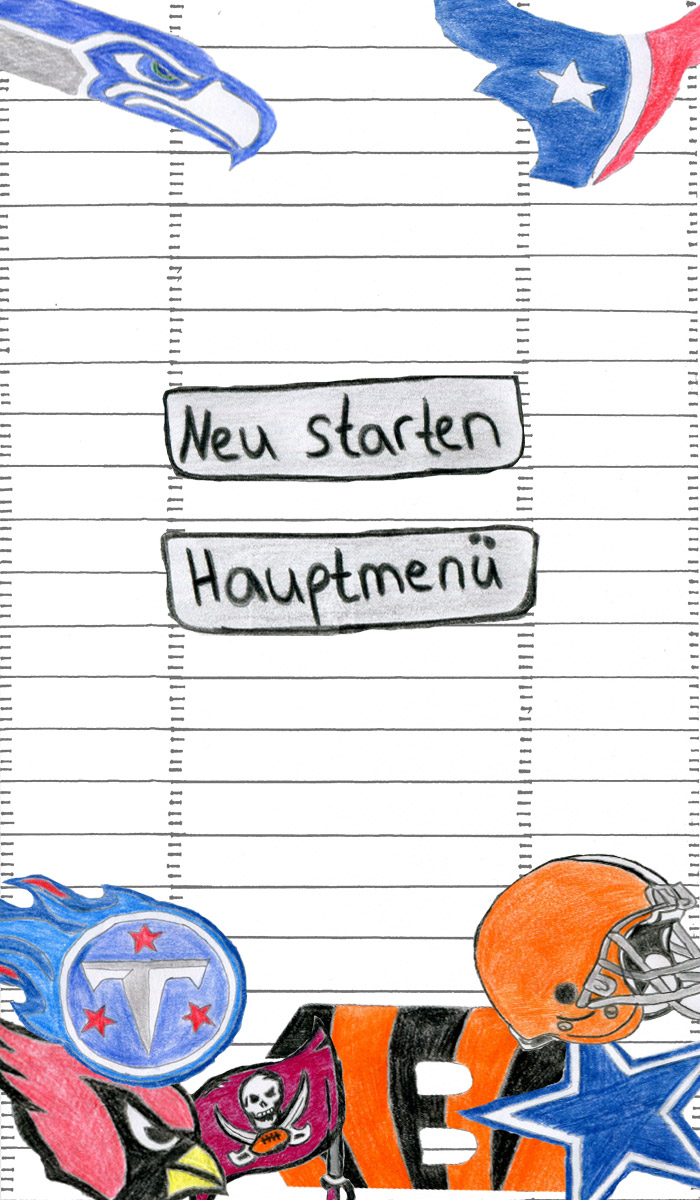 Neu starten
Hauptmenü
T
B